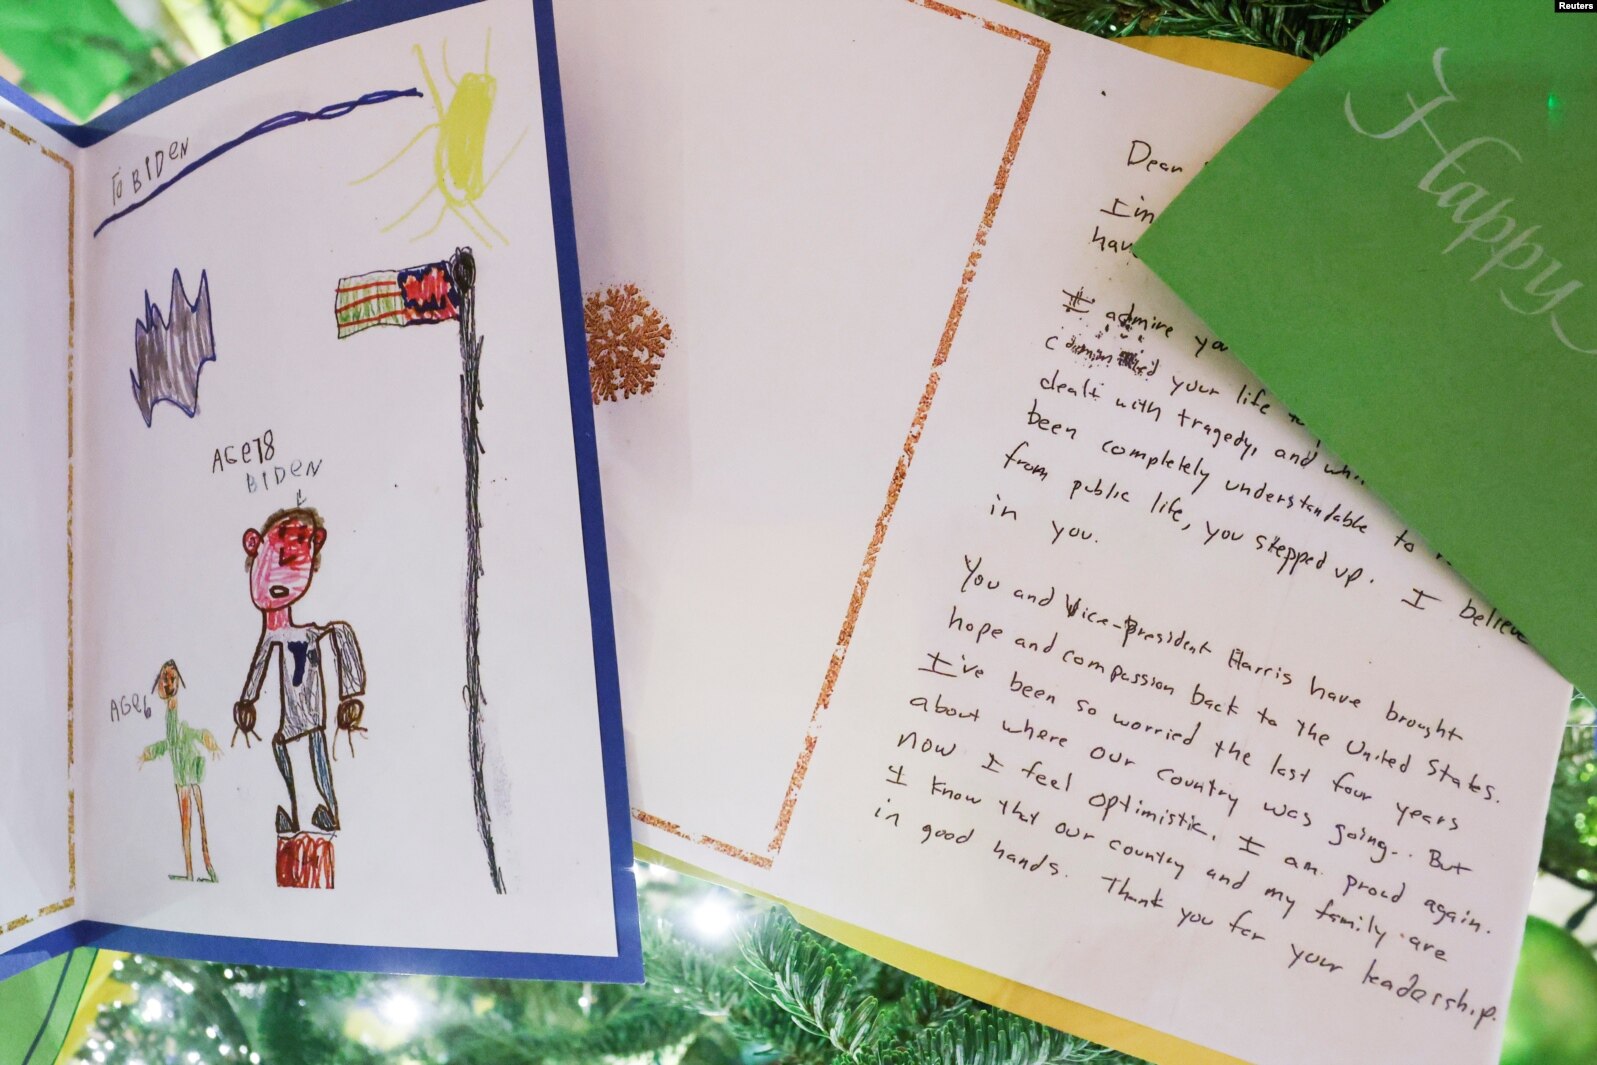 Reuters
To BIDEN
AGe78
BIDEN
AGe6
Happy
Dear
I'm
hav
I admire you
your life to
dealt with tragedy, and
been completely understandable to
from public life, you stepped up. I believe
in you.
You and Vice-President Harris have brought
hope and compassion back to the United States.
I've been so worried the last four years
about where our country was going.. But
now I feel optimistic. I am proud again.
I know that our country and my family are
in good hands. Thank you for your leadership.